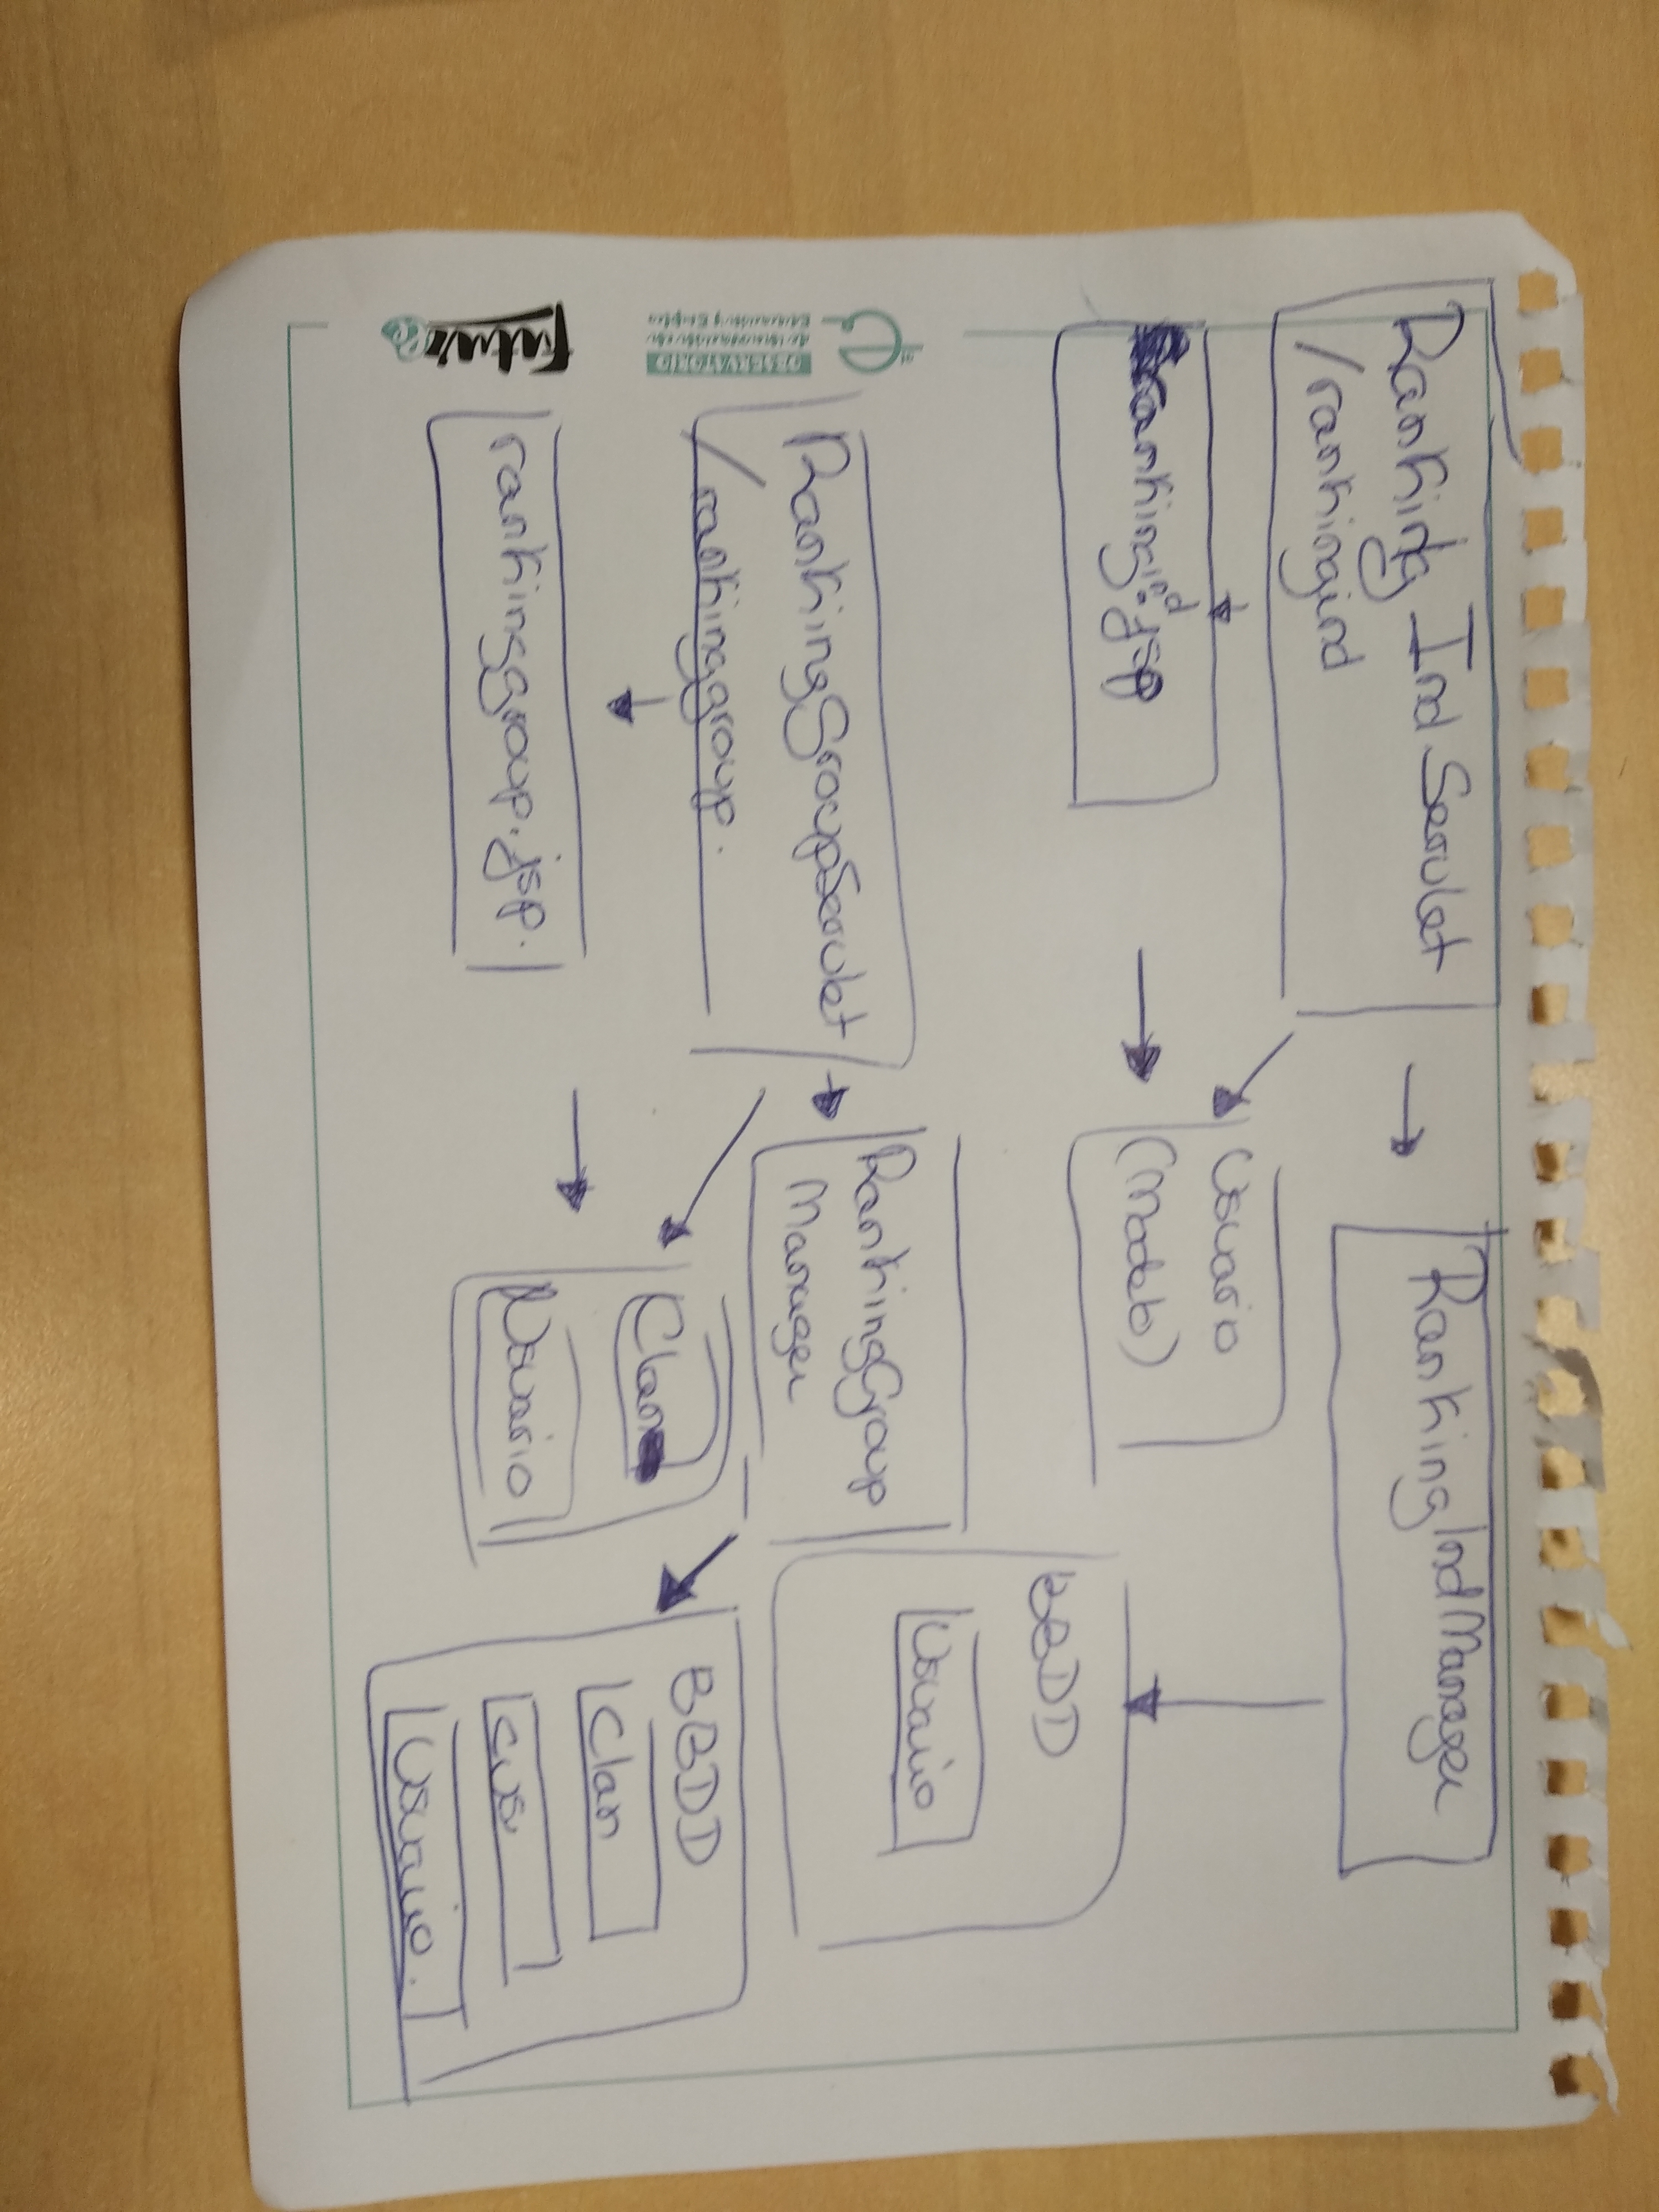 Ranking Ind Servlet
/rankingind
RankingIndManager
rankingind.jsp
Usuario
(Modelo)
BBDD
Usuario
RankingGroupServlet
/rankinggroup.
RankingGroup
Manager
rankinggroup.jsp.
Clan
Usuario
BBDD
Clan
Usuario.